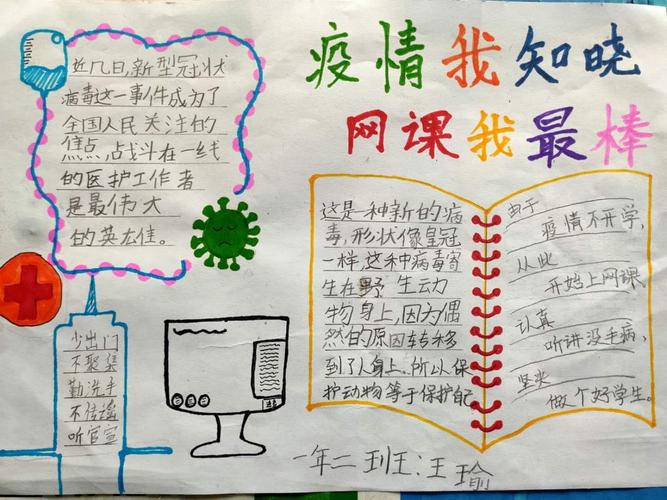 疫情我知晓
网课我最棒
近几日,新型冠状
病毒这一事件成为了
全国人民关注的
焦点,占战斗在一线
的医护工作者
是最伟大
的英雄。
少出门
不聚集
勤洗手
不传谣
听官宣
这是一种新的病
毒,形状像皇冠
一样,这种病毒寄
生在野生动
物身上,因为偶
然的原因转移
到了人身上.所以保
护动物等于保护自己
由于
疫情不开学,
从此
开始上网课,
认真
听讲没毛病,
坚决
做个好学生。
一年二班:王瑜